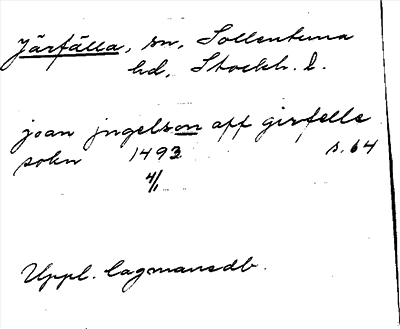 Järfälla, sn, Sollentuna
hd, Stockh. l.
joan jngelson aff girfelle
sokn 1493 s. 64
4/1
Uppl. lagmansdb.